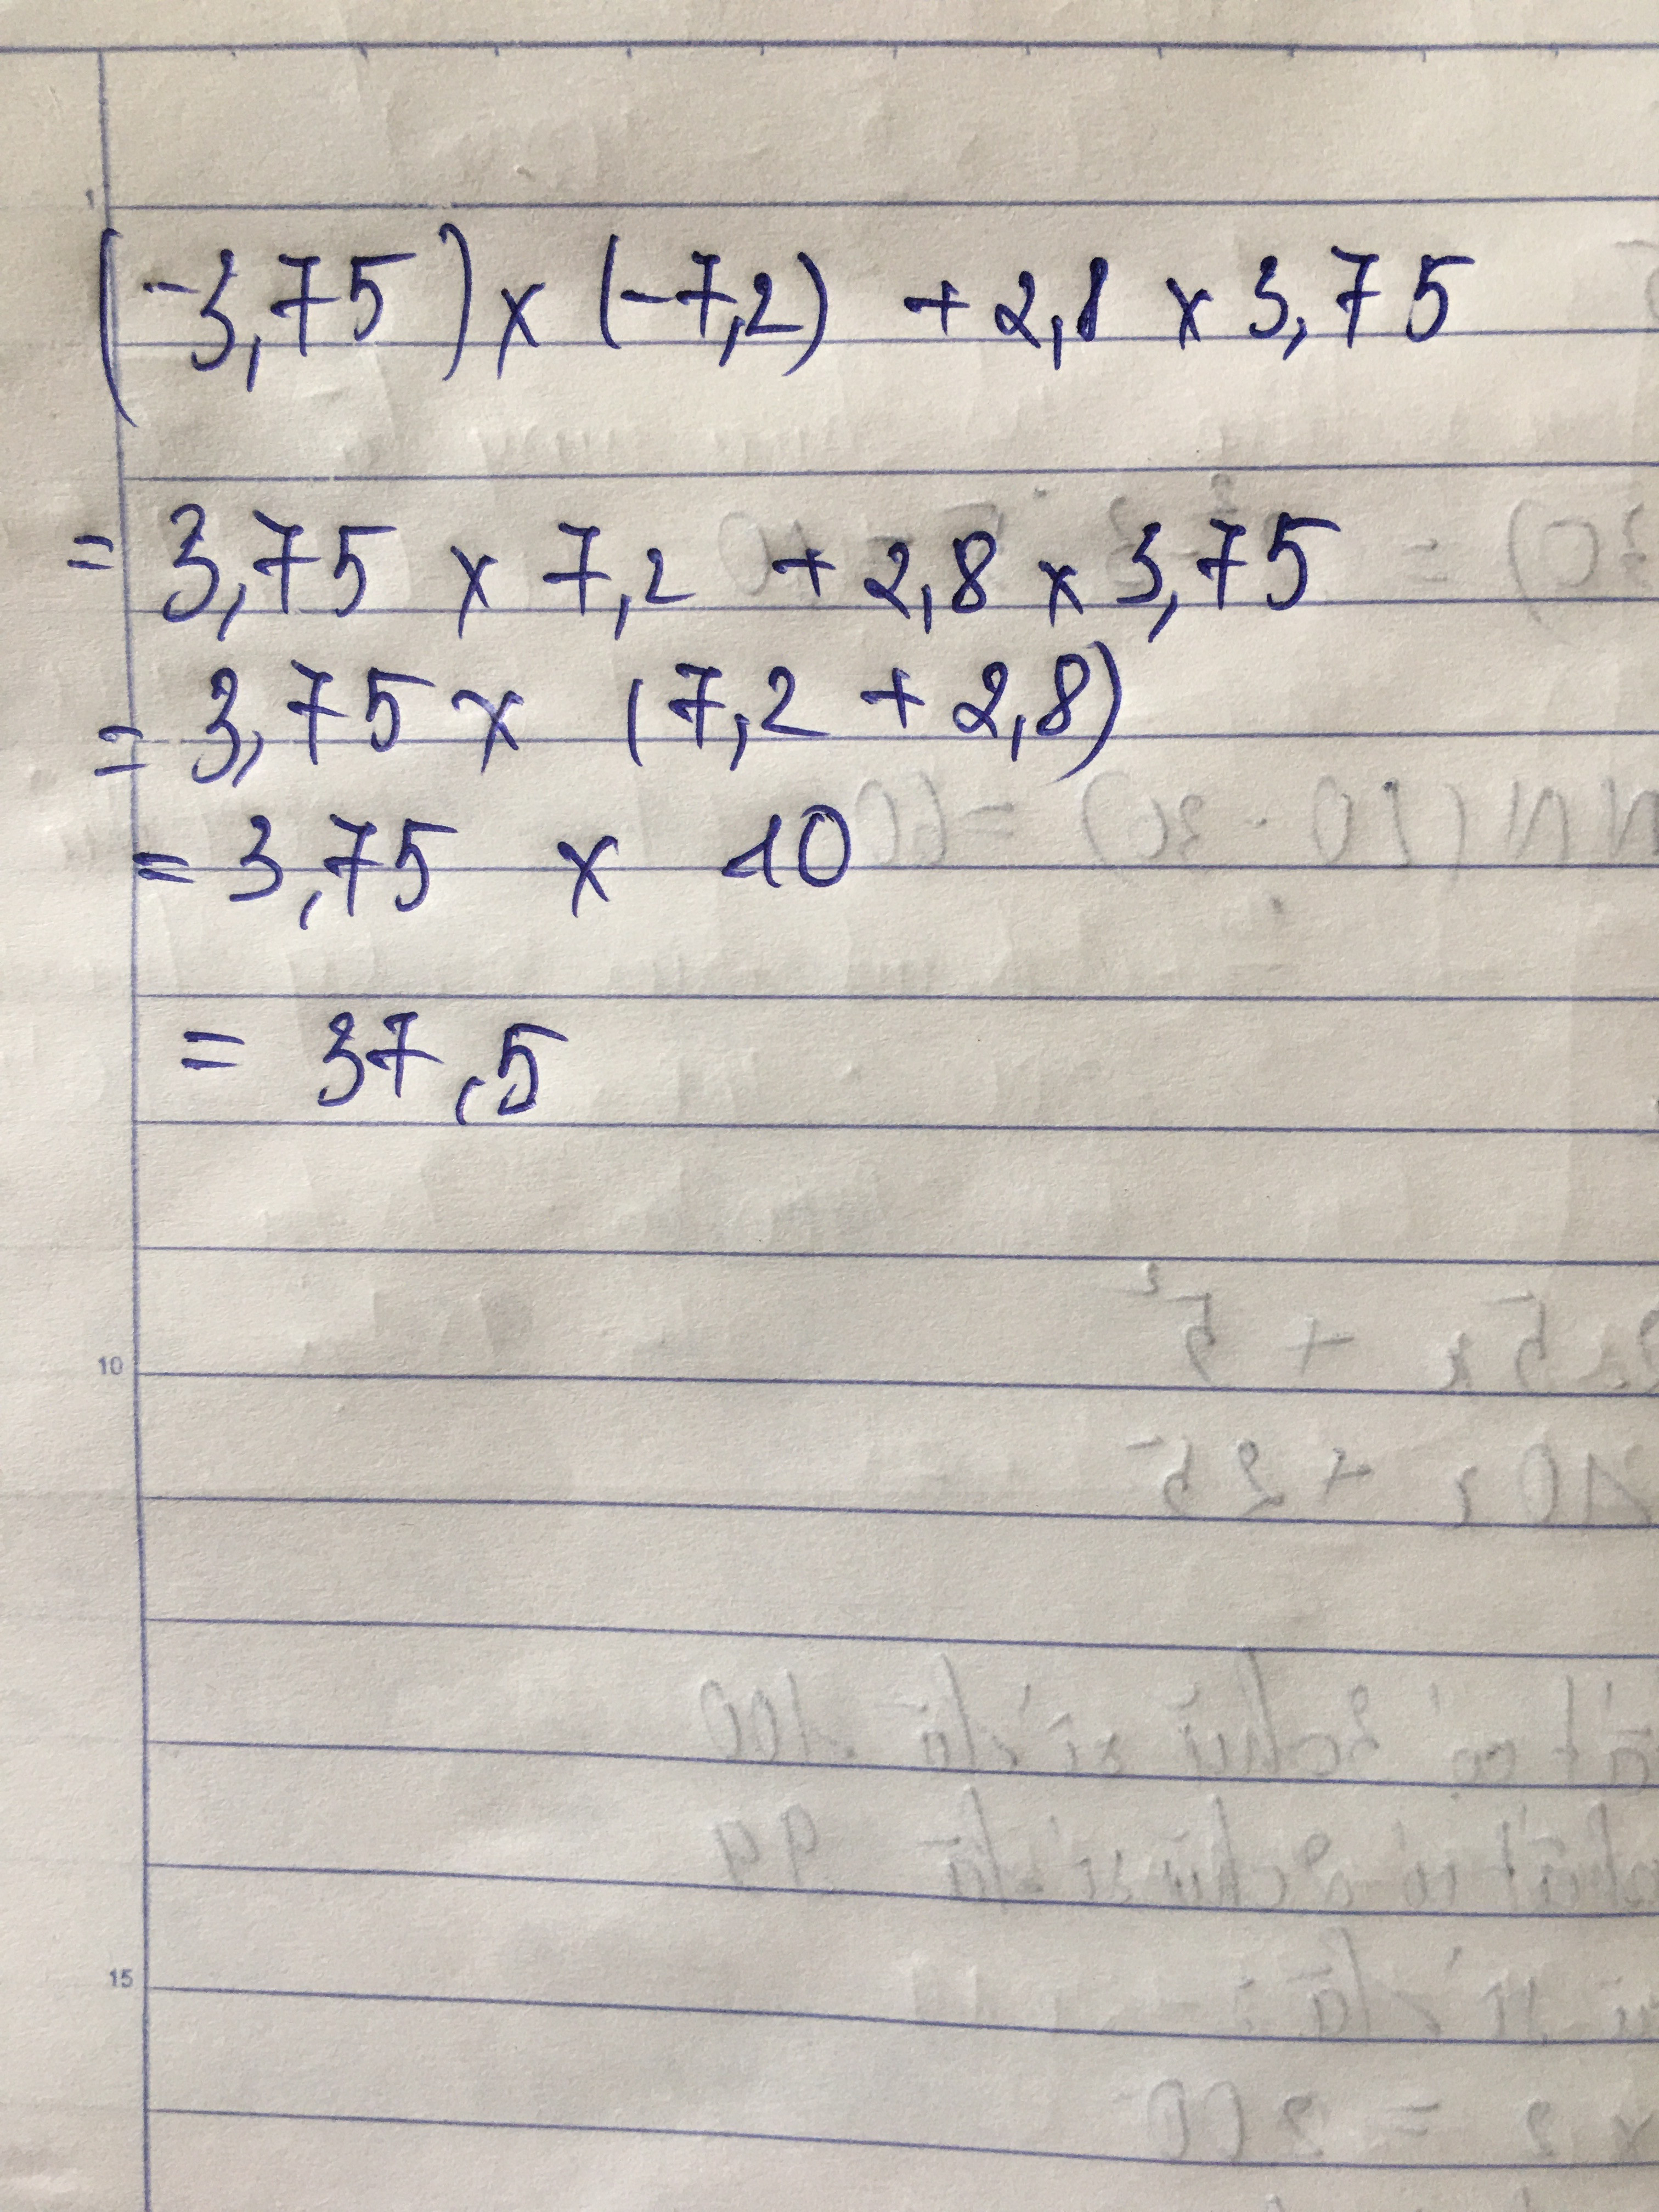 1
(-3,75) x (-7,2) + 2,8 x 3,75
= 3,75 x 7,2 + 2,8 x 3,75
= 3,75 x (7,2 + 2,8)
= 3,75 x 10
= 37,5
10
15